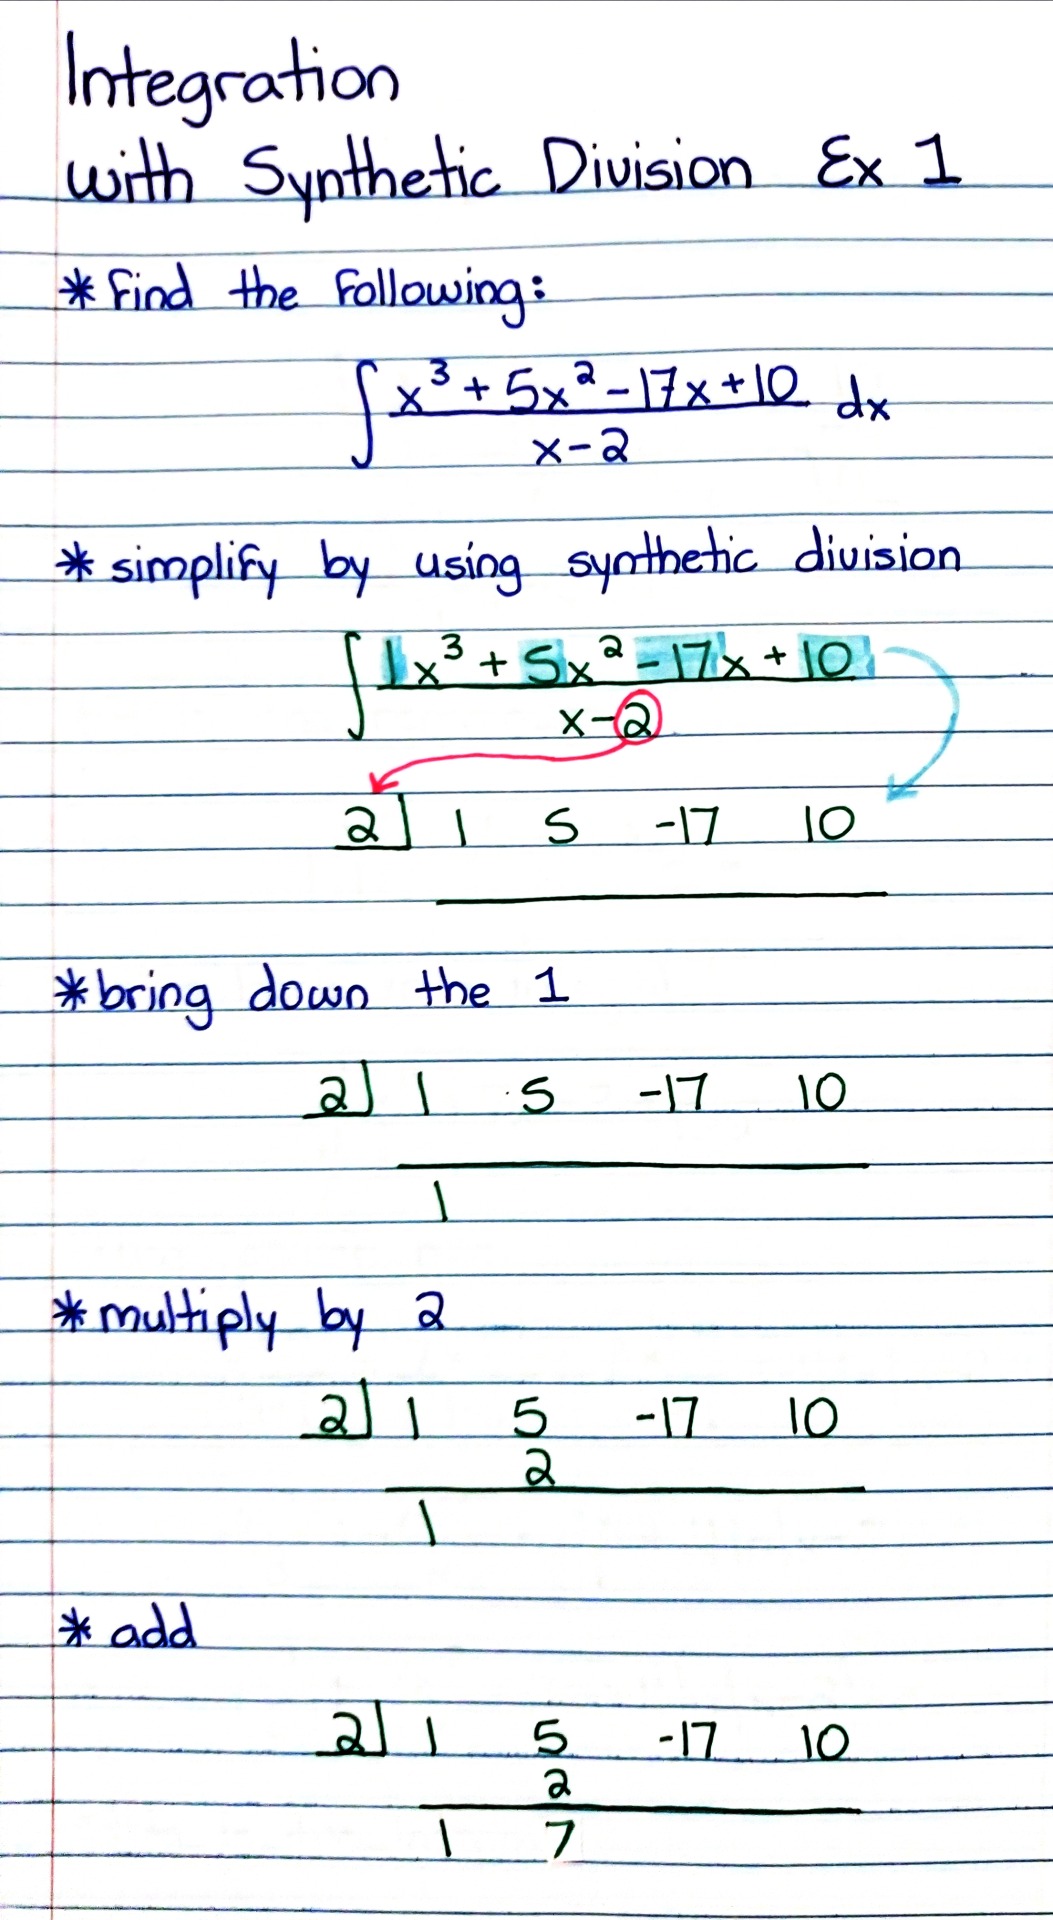 Integration
with Synthetic Division Ex 1
* find the following:
∫ x³ + 5x² - 17x + 10 dx
x - 2
* simplify by using synthetic division
∫ 1x³ + 5x² - 17x + 10
x - 2
2 | 1 5 -17 10
* bring down the 1
2 | 1 5 -17 10
1
* multiply by 2
2 | 1 5 -17 10
2
1
* add
2 | 1 5 -17 10
2
1 7